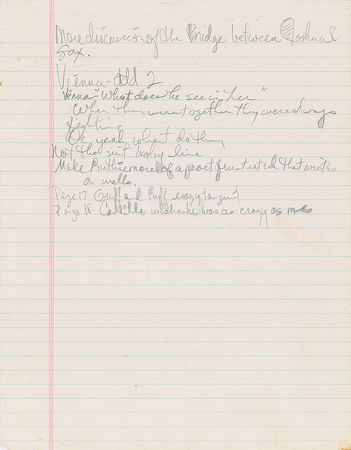 More discussion of the Bridge between Joshua &
Sax.
Vienna - Add 2
Vienna - "What does he see in her"
When they were together they were always
fighting
Oh yeah what do they
Not the suit line
Make Ruthie more of a poet frustrated that writes
on walls.
Page 17 Griff and Puff
Page 18 - Camille wishes he was as crazy as me